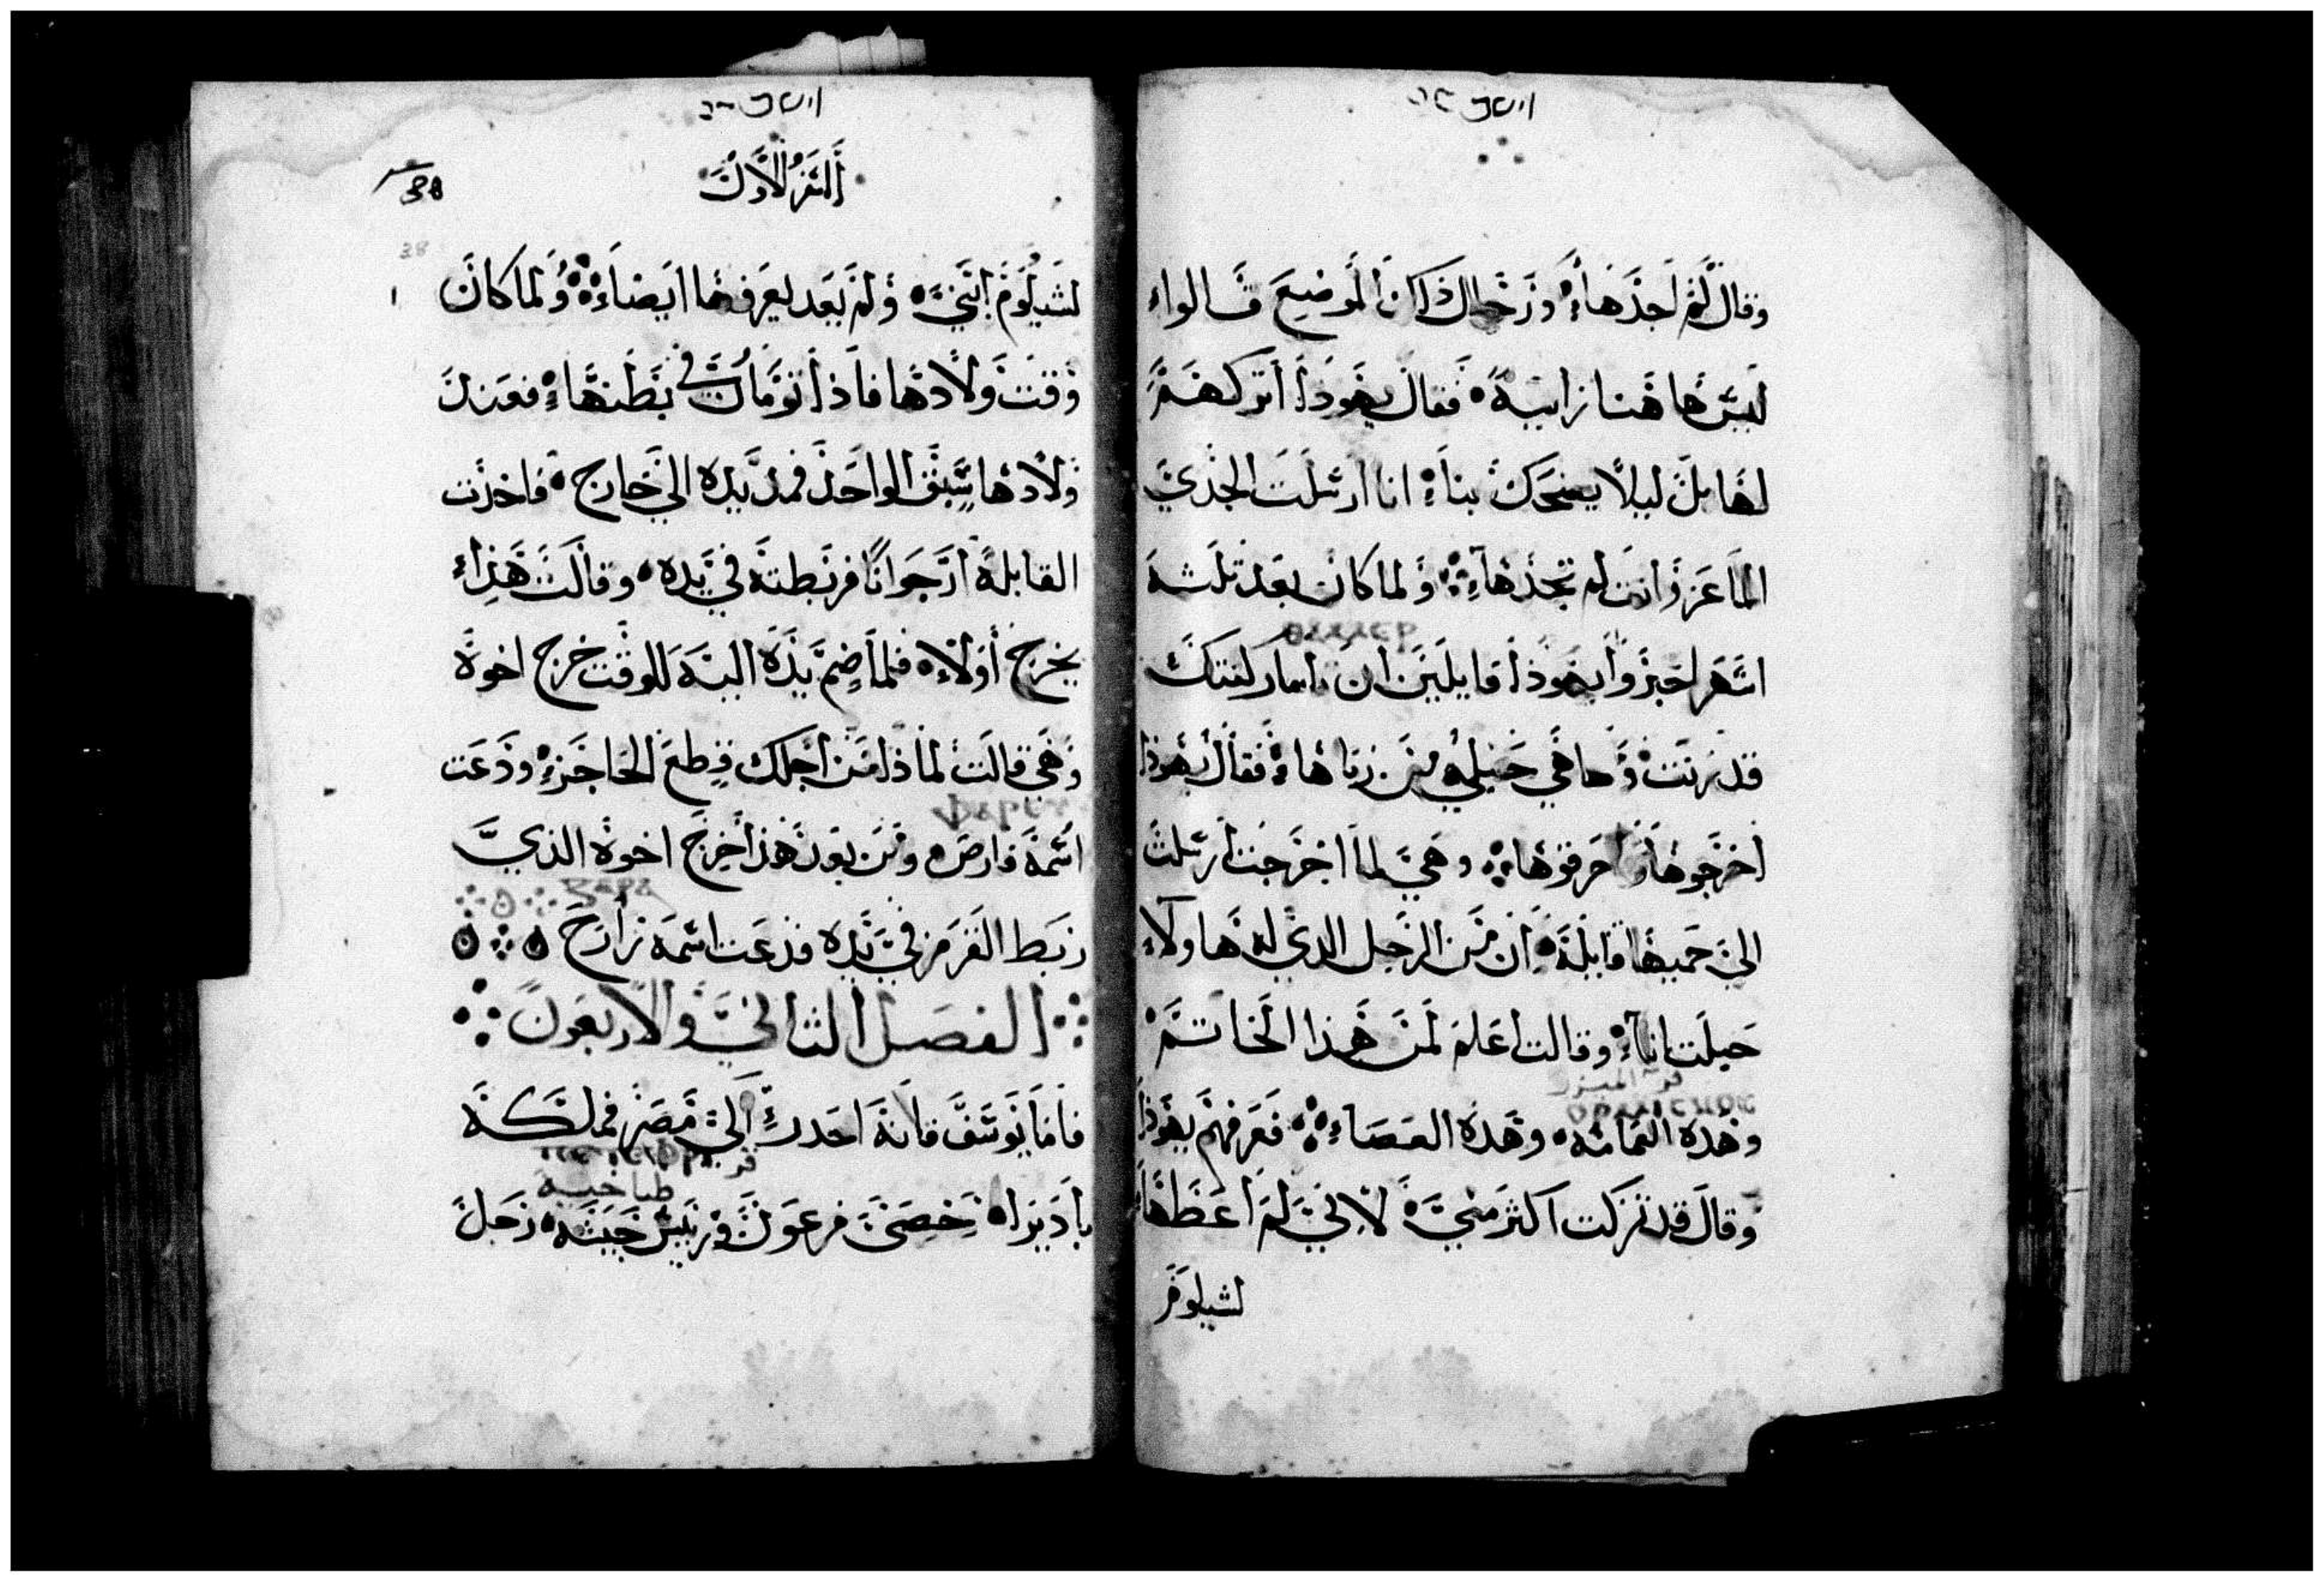 وقال لم اجدها وزجال ذاكن الموضع قالوا
ليس هاهنا زانية فقال يهوذا اتركهم
لها بل ليلا يضحك بنا انا ارسلت الجدي
الماعز وانت لم تجدها ولما كان بعد تلثة
اشهر اخبروا يهوذا قايلين ان تامار كنتك
قد زنت وها هي حبلي من زناها فقال يهوذا
اخرجوها واحرقوها وهي لما اخرجت ارسلت
الي حميها قايلة ان من الرجل الذي له هاولاء
حبلت انا وقالت اعلم لمن هذا الخاتم
وهذه العمامة وهذه العصاء فعرفهم يهوذا
وقال قد تزكت اكثر مني لانني لم اعطها
لشيلوم
السفر الاول
38
لشيلوم ابني ولم يعد يعرفها ايضا ولما كان
وقت ولادها فاذا تومان في بطنها فعند
ولادها سبق الواحد فمد يده الي خارج فاخذت
القابلة ارجوانا فربطته في يده وقالت هذا
يخرج اولا فلما ضم يده اليه للوقت خرج اخوه
وهي قالت لماذا من اجلك قطع الحاجز ودعت
اسمه فارص ومن بعد هذا خرج اخوه الذي
ربط القرمز في يده فدعت اسمه زارح
الفصل الثاني والاربعون
فاما يوسف فانه احدر الي مصر فملكه
طباخية
باديزاه خصي فرعون وريس جيشه رجل